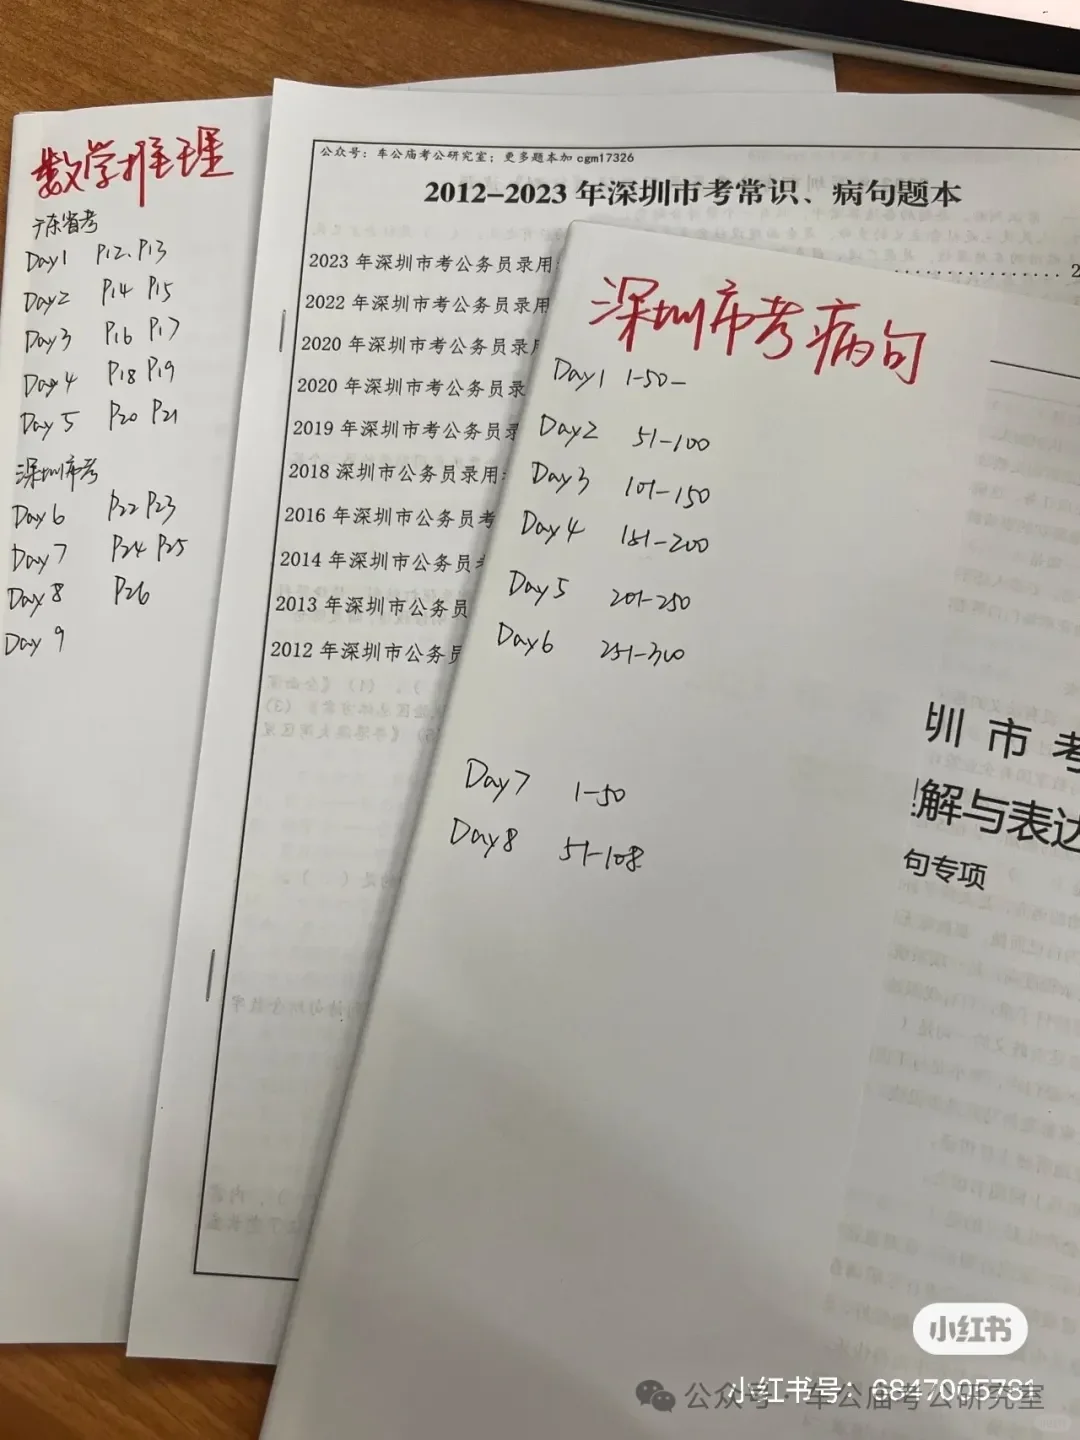 数学推理
广东省考
Day1 P12、P13
Day2 P14 P15
Day3 P16 P17
Day4 P18 P19
Day5 P20 P21
深圳市考
Day6 P22 P23
Day7 P24 P25
Day8 P26
Day9
公众号：车公庙考公研究室；更多题本加cgm17326
2012-2023年深圳市考常识、病句题本
2023年深圳市考公务员录用
2022年深圳市考公务员录用
2020年深圳市考公务员录用
2020年深圳市考公务员录
2019年深圳市考公务员录
2018年深圳市公务员录用
2016年深圳市公务员考
2014年深圳市公务员
2013年深圳市公务员
2012年深圳市公务员
深圳市考病句
Day1 1-50-
Day2 51-100
Day3 101-150
Day4 151-200
Day5 201-250
Day6 251-300
Day7 1-50
Day8 51-108
圳市考
解与表达
句专项
小红书
小红书号：6847005781
公众号·车公庙考公研究室